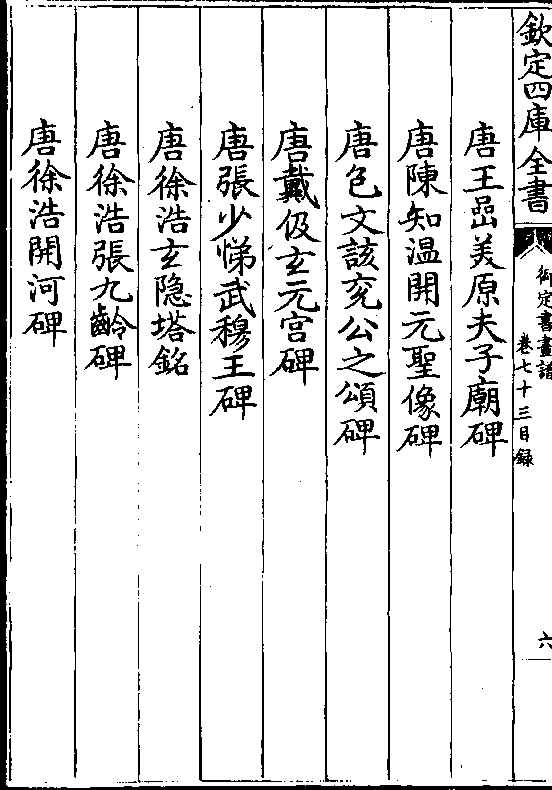 欽定四庫全書
御定書畫譜
卷七十三目録
六
唐王嵒美原夫子廟碑
唐陳知溫開元聖像碑
唐包文該兖公之頌碑
唐戴伋玄元宫碑
唐張少悌武穆王碑
唐徐浩玄隐塔銘
唐徐浩張九齡碑
唐徐浩開河碑